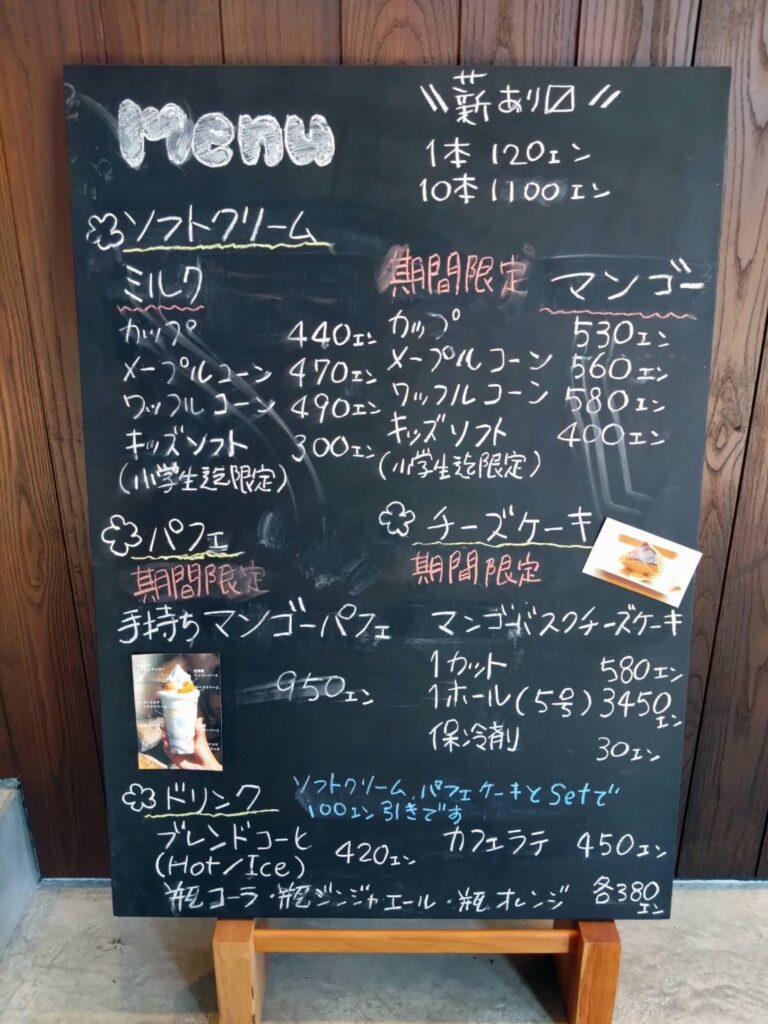 Menu
\\薪あり〼//
1本 120エン
10本 1100エン
ソフトクリーム
ミルク
カップ 440エン
メープルコーン 470エン
ワッフルコーン 490エン
キッズソフト 300エン
(小学生迄限定)
期間限定 マンゴー
カップ 530エン
メープルコーン 560エン
ワッフルコーン 580エン
キッズソフト 400エン
(小学生迄限定)
パフェ
期間限定
手持ちマンゴーパフェ
950エン
チーズケーキ
期間限定
マンゴーバスクチーズケーキ
1カット 580エン
1ホール(5号) 3450エン
保冷剤 30エン
ドリンク
ソフトクリーム、パフェ ケーキとSetで
100エン引きです
ブレンドコーヒ 420エン
(Hot/Ice)
カフェラテ 450エン
瓶コーラ・瓶ジンジャエール・瓶オレンジ 各380エン